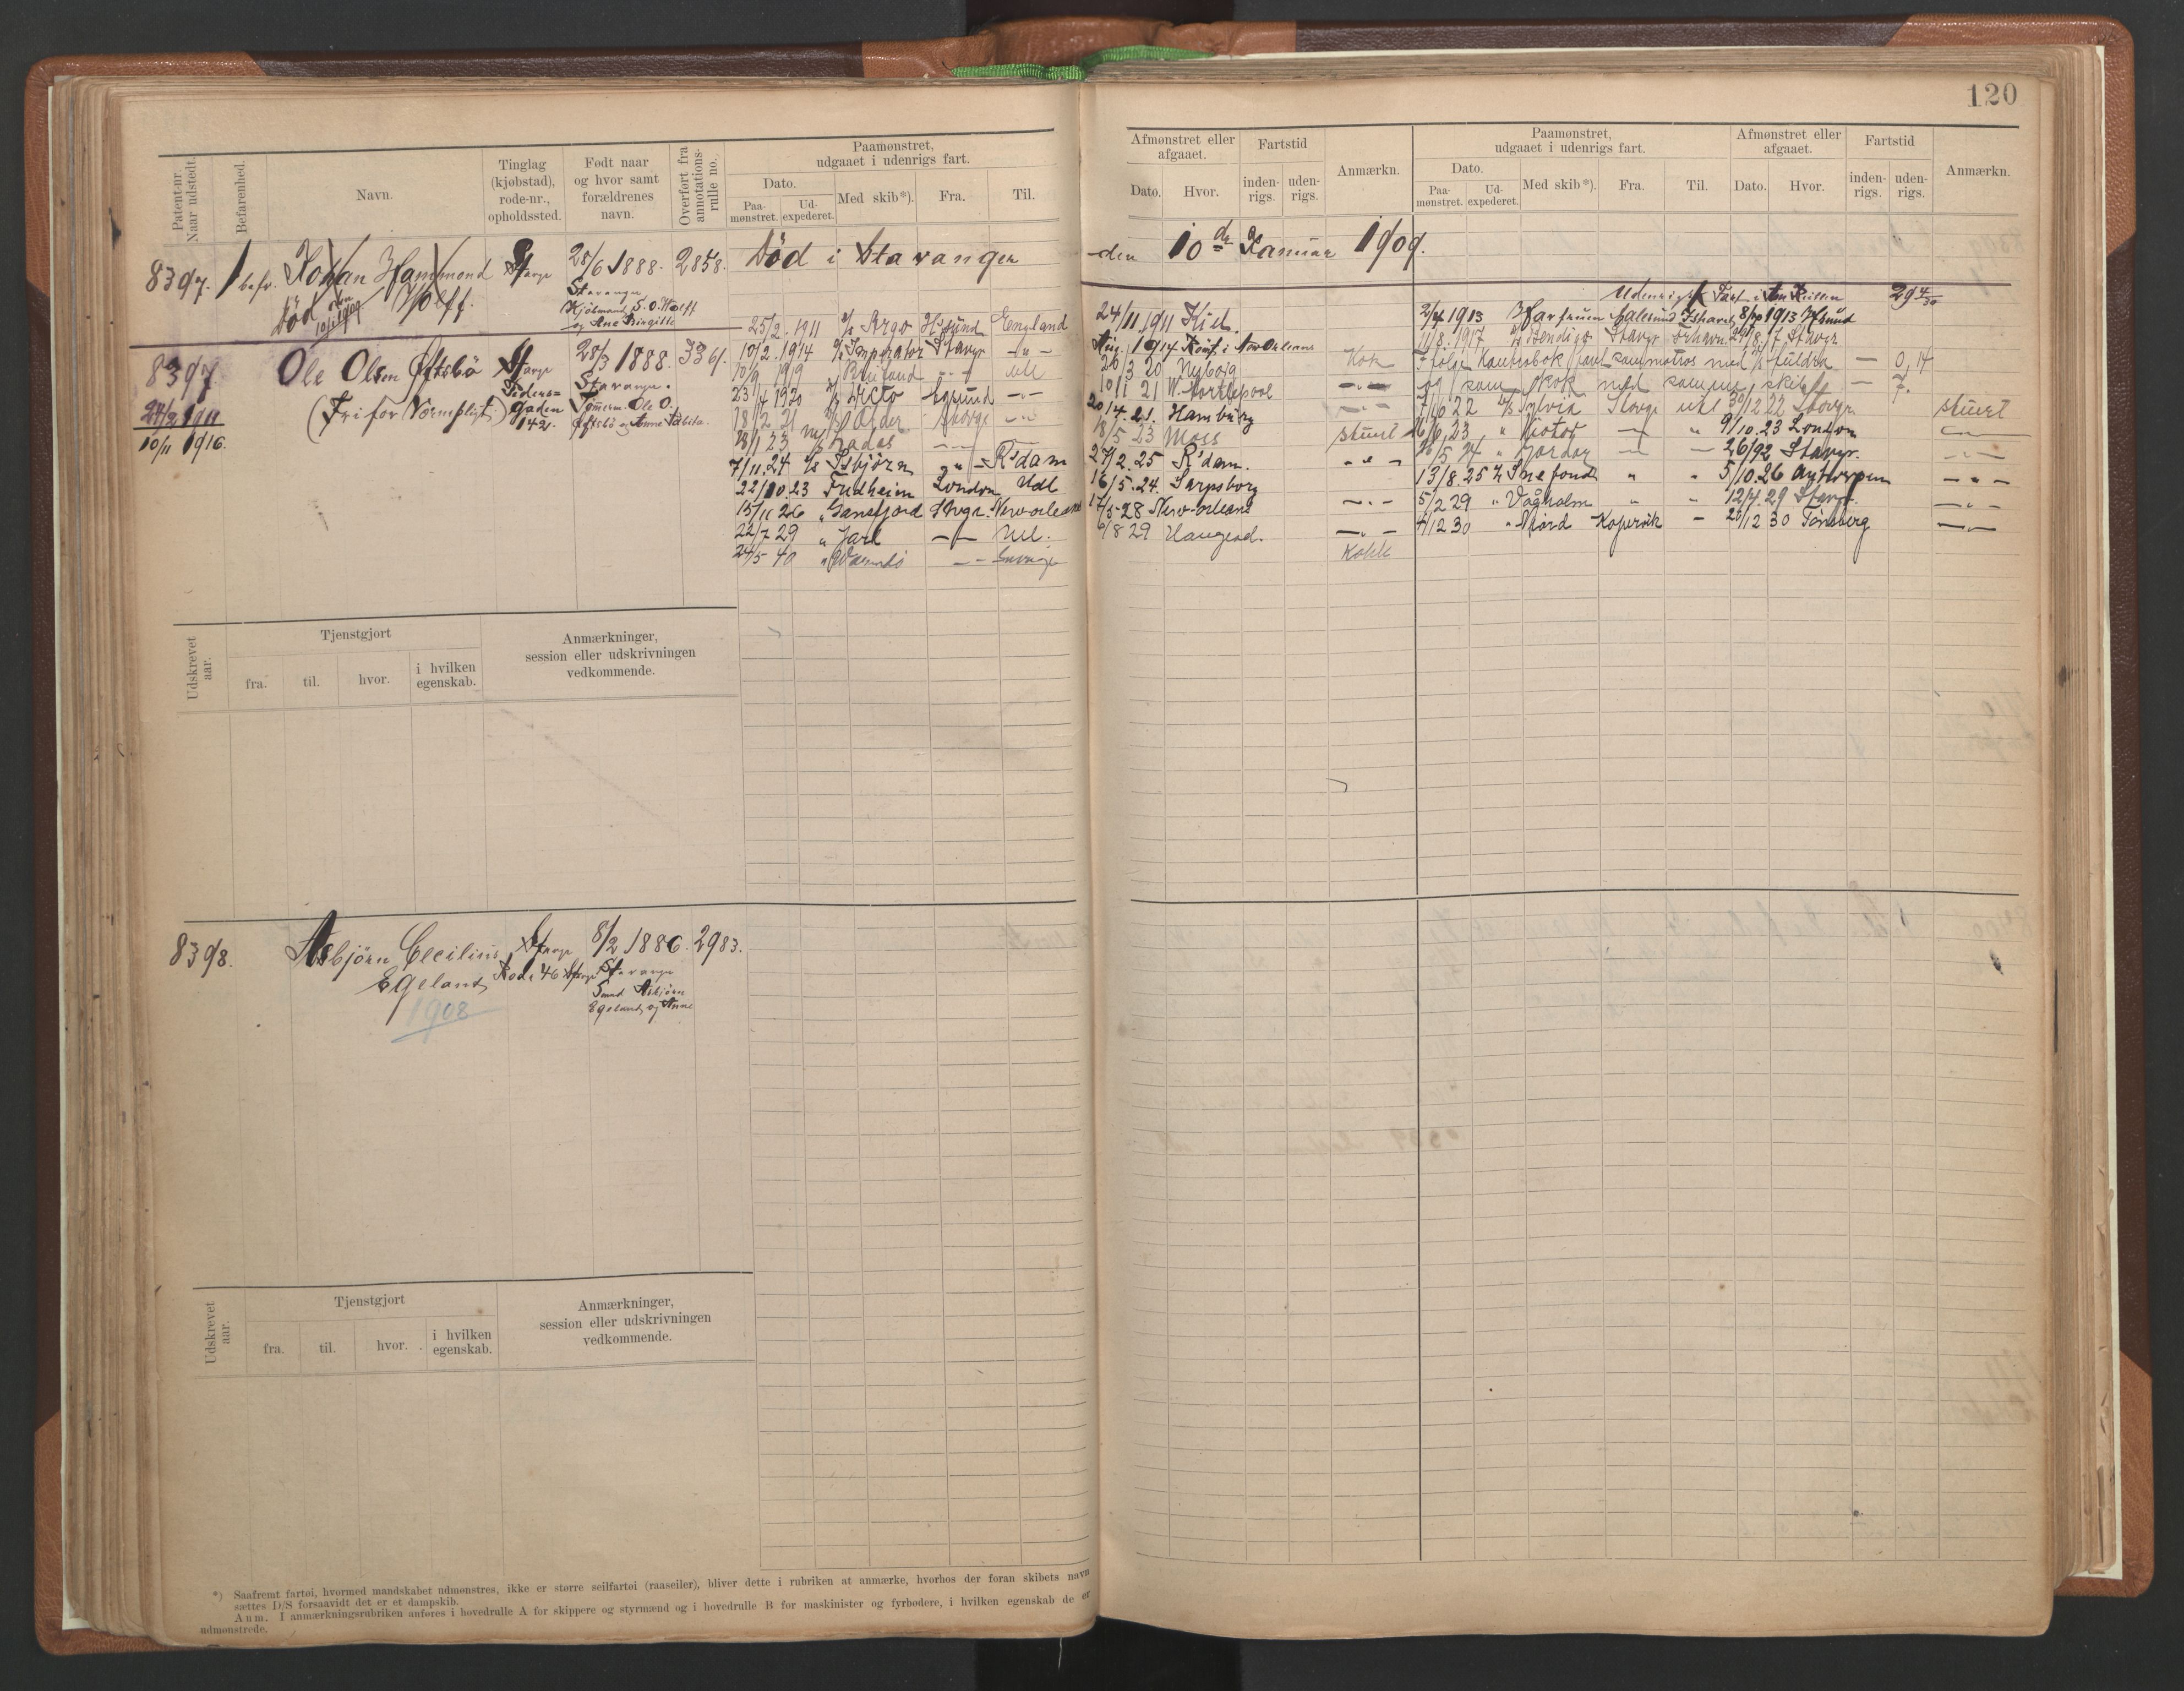 120
Patent-nr. Naar udstedt.
Befarenhed.
Navn.
Tinglag (kjøbstad), rode-nr., opholdssted.
Født naar og hvor samt forældrenes navn.
Overført fra annotations-rulle no.
Paamønstret, udgaaet i udenrigs fart.
Dato.
Paa-mønstret.
Ud-expederet.
Med skib*).
Fra.
Til.
Afmønstret eller afgaaet.
Dato.
Hvor.
Fartstid
inden-rigs.
uden-rigs.
Anmærkn.
Paamønstret, udgaaet i udenrigs fart.
Dato.
Paa-mønstret.
Ud-expederet.
Med skib*).
Fra.
Til.
Afmønstret eller afgaaet.
Dato.
Hvor.
Fartstid
inden-rigs.
uden-rigs.
Anmærkn.
8397. 1 befr. Johan Hammond Wolff. Stavgr 28/6 1888. 2858. Død i Stavanger den 10de Januar 1909.
Død den 10/1 1909
Stavanger
Kjøbmand S. O. Wolff
og Ane Birgitte
8397. Ole Olsen Øftsbö Stavgr 28/3 1888. 3361.
24/2 1911
10/11 1916.
(Fri for Værnepligt)
Peders-
gaden
142.
Stavanger.
Tømerm. Ole O.
Øftsbö og Anne
25/2 1911 Argo England 24/11 1911 Kiel.
10/2 1914 Imperator Stavgr -"- Aug. 1914 Rømt i New Orleans
10/9 1919 Udl 20/3 20 Nyborg Kok
23/4 1920 Dicto Egersund -"- 10/11 21 W. Hartlepool -"-
18/2 21 Stavgr -"- 20/4 21. Hamburg -"-
18/1 23 8/5 23 Moss stuert
7/11.24 Isbjørn -"- R'dam 27/2.25 R'dam. -"-
22/10.23 Fredheim London Udl 16/5.24. Sarpsborg
15/11 26 " Gansfjord Stvgr. New orleans 17/5-28 New-orleans -"-
22/7 29 " Jarl -"- Udl. 6/8 29 Haugesd. -"-
24/5 40 Kokk
Udenrigsk Fart i
2/4 1913 Aalesund Ishavet 8/10 1913
11/8 1917 Bendigo Stavgr 7 Stavgr
Ifølge Kontrabok som med Huldra — 0,14
og som kok med samme skib — 7.
22 Sylvia Stavgr udl 30/12 22 Stavgr. stuert
23 " Motor " 9/10.23 London
24 " Jordan — Stavgr. -"-
13/8.25 Snefond " " 5/10.26 Antwerpen -"-
5/2 29 " Vågholm " " 12/4.29 Stavgr. -"-
4/12 30 " Njord Kopervik - 20/12 30 Tønsberg -"-
Udskrevet aar.
Tjenstgjort
fra.
til.
hvor.
i hvilken egenskab.
Anmærkninger, session eller udskrivningen vedkommende.
8398. Asbjørn Cecilius Egeland Stavgr 8/2 1886. 2983.
Rode 46 Stavgr
Stavanger
Smed Asbjørn
Egeland og Anne
1908
Udskrevet aar.
Tjenstgjort
fra.
til.
hvor.
i hvilken egenskab.
Anmærkninger, session eller udskrivningen vedkommende.
*) Saafremt fartøi, hvormed mandskabet udmønstres, ikke er større seilfartøi (raaseiler), bliver dette i rubriken at anmærke, hvorhos der foran skibets navn
sættes D/S forsaavidt det er et dampskib.
Anm. I anmærkningsrubriken anføres i hovedrulle A for skippere og styrmænd og i hovedrulle B for maskinister og fyrbødere, i hvilken egenskab de er
udmønstrede.